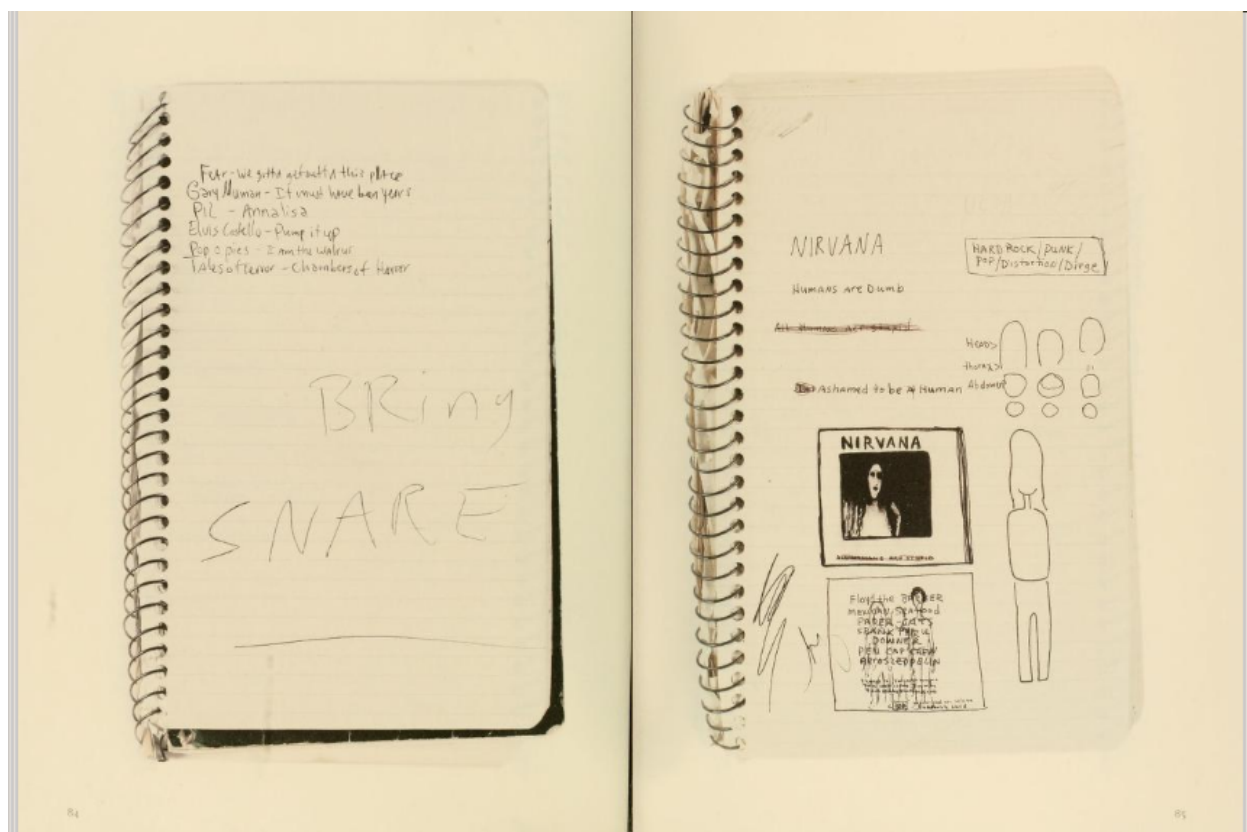 Fear - we gotta get outta this place
Gary Numan - It must have been years
PIL - Annalisa
Elvis Costello - Pump it up
Pop o pies - I am the walrus
Tales of terror - Chambers of Horror
BRing
SNARE
84
NIRVANA
HARD ROCK/PUNK/
POP/Distortion/Dirge
Humans Are Dumb
All Humans are stupid
Heads
thorax
Ashamed to be a Human
Abdomen
NIRVANA
Floyd the BARBER
MEXICAN Seafood
PAPER CUTS
SPANK THRU
DOWNER
PEN CAP CHEW
AEROSZEPPELIN
85